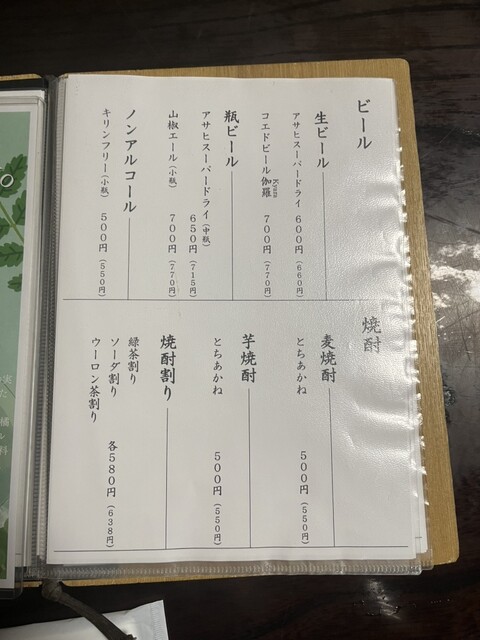 ビール
生ビール
アサヒスーパードライ 600円（660円）
コエドビール 伽羅 Kyara 700円（770円）
瓶ビール
アサヒスーパードライ（中瓶） 650円（715円）
山椒エール（小瓶） 700円（770円）
ノンアルコール
キリンフリー（小瓶） 500円（550円）
焼酎
麦焼酎
とちあかね 500円（550円）
芋焼酎
とちあかね 500円（550円）
焼酎割り
緑茶割り
ソーダ割り 各580円（638円）
ウーロン茶割り